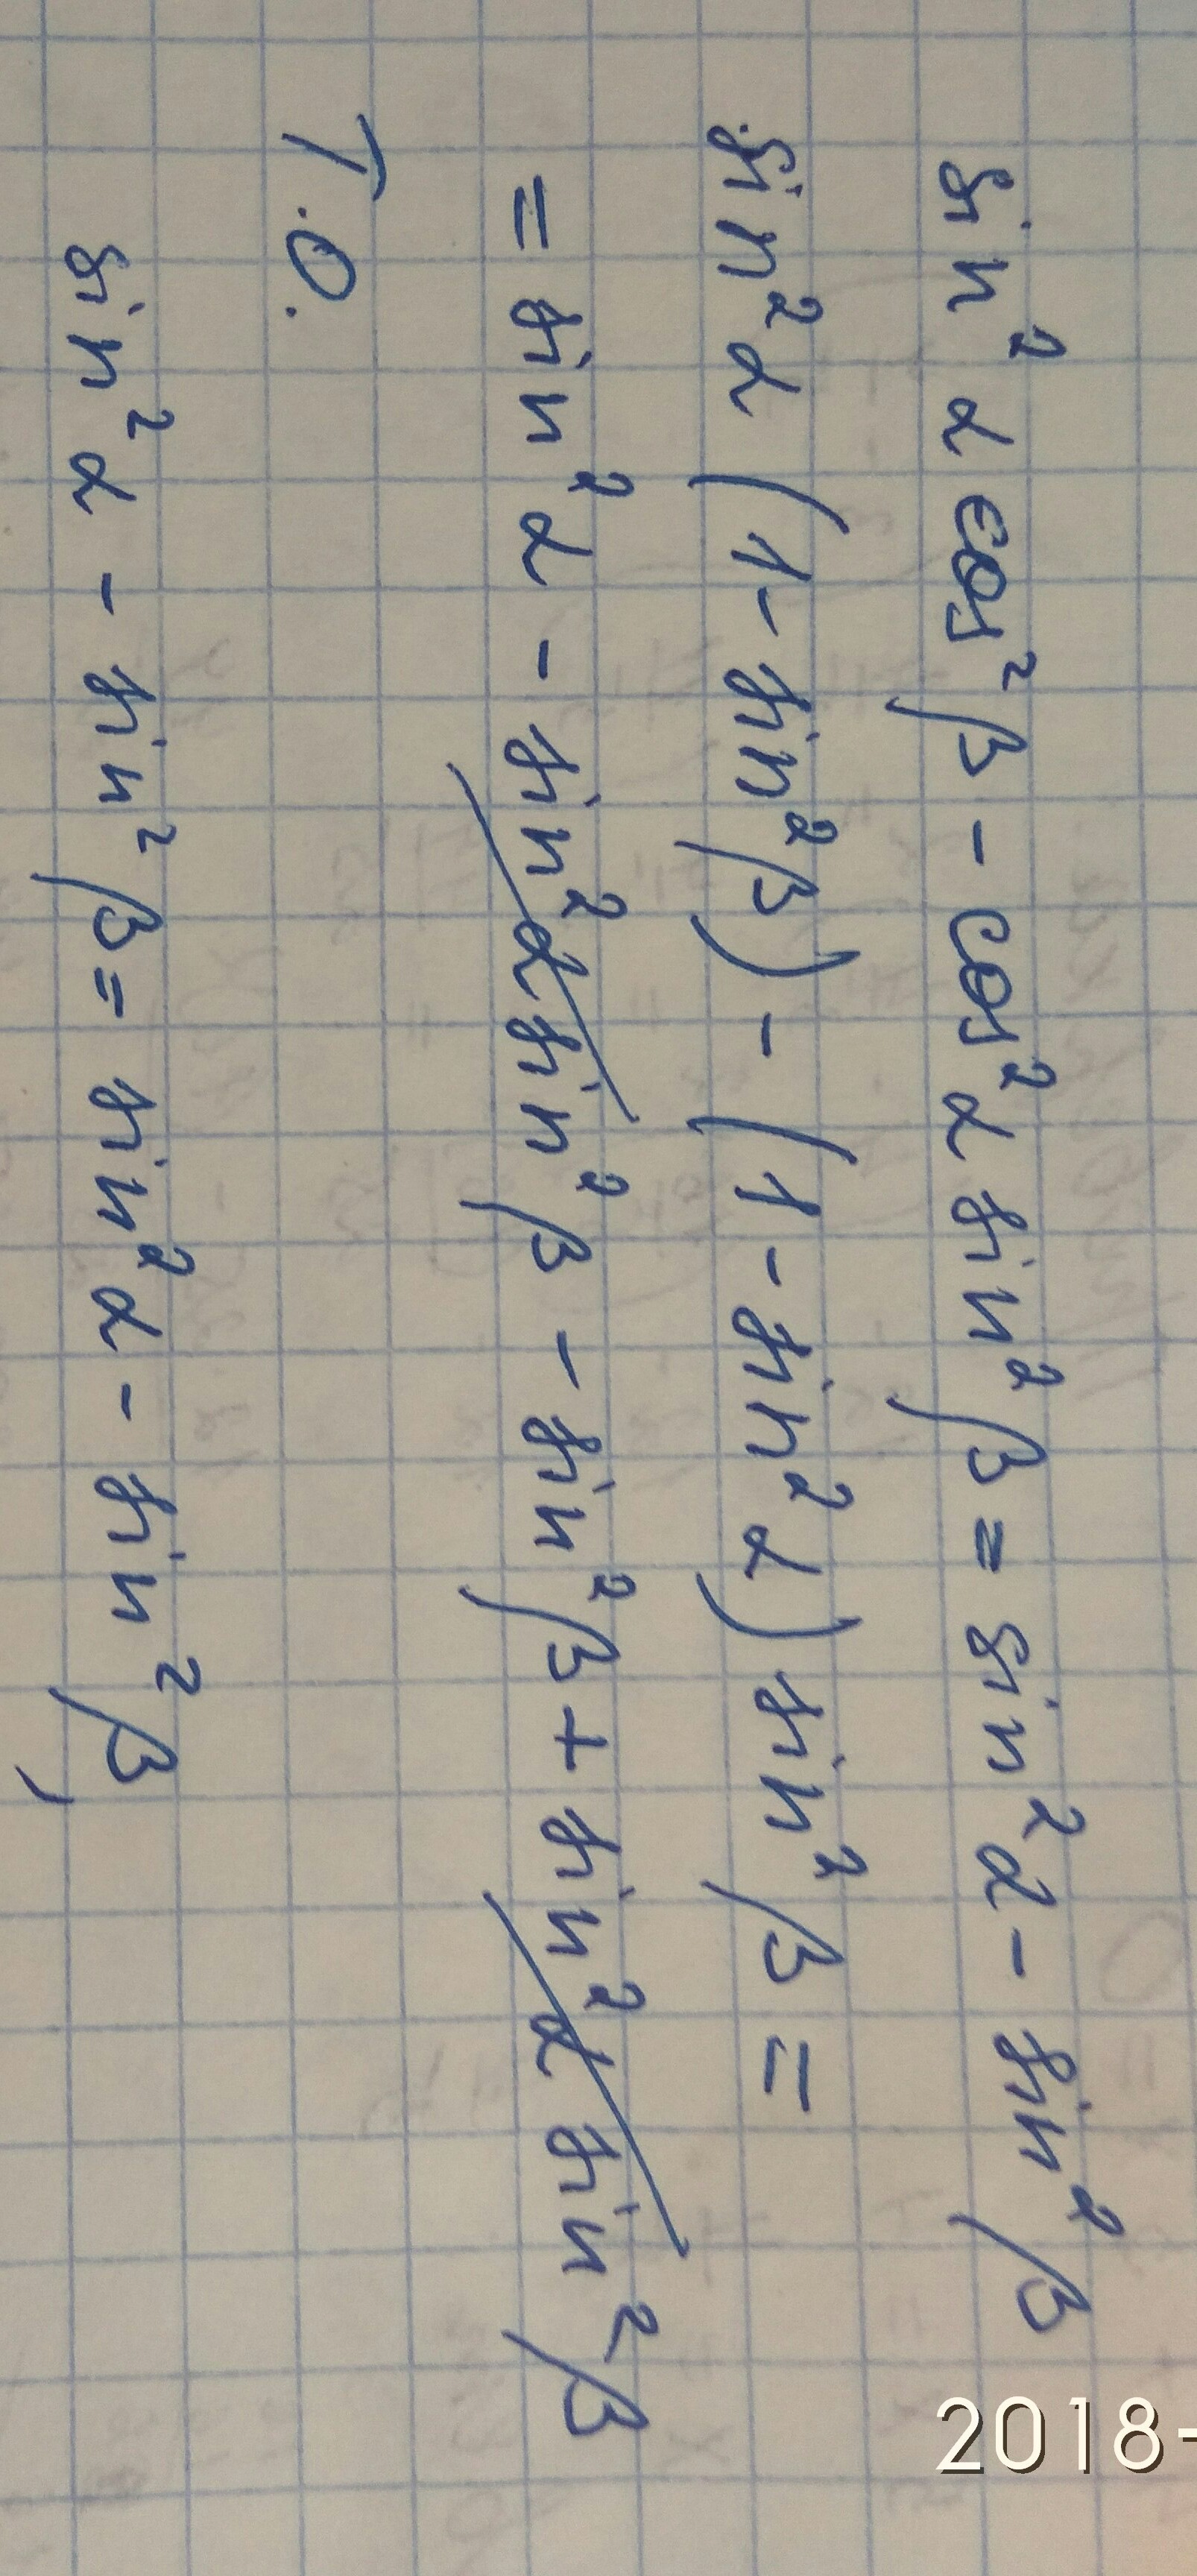 sin²α cos²β - cos²α sin²β = sin²α - sin²β
sin²α (1 - sin²β) - (1 - sin²α) sin²β =
= sin²α - sin²α sin²β - sin²β + sin²α sin²β
Т.О.
sin²α - sin²β = sin²α - sin²β,
2018-